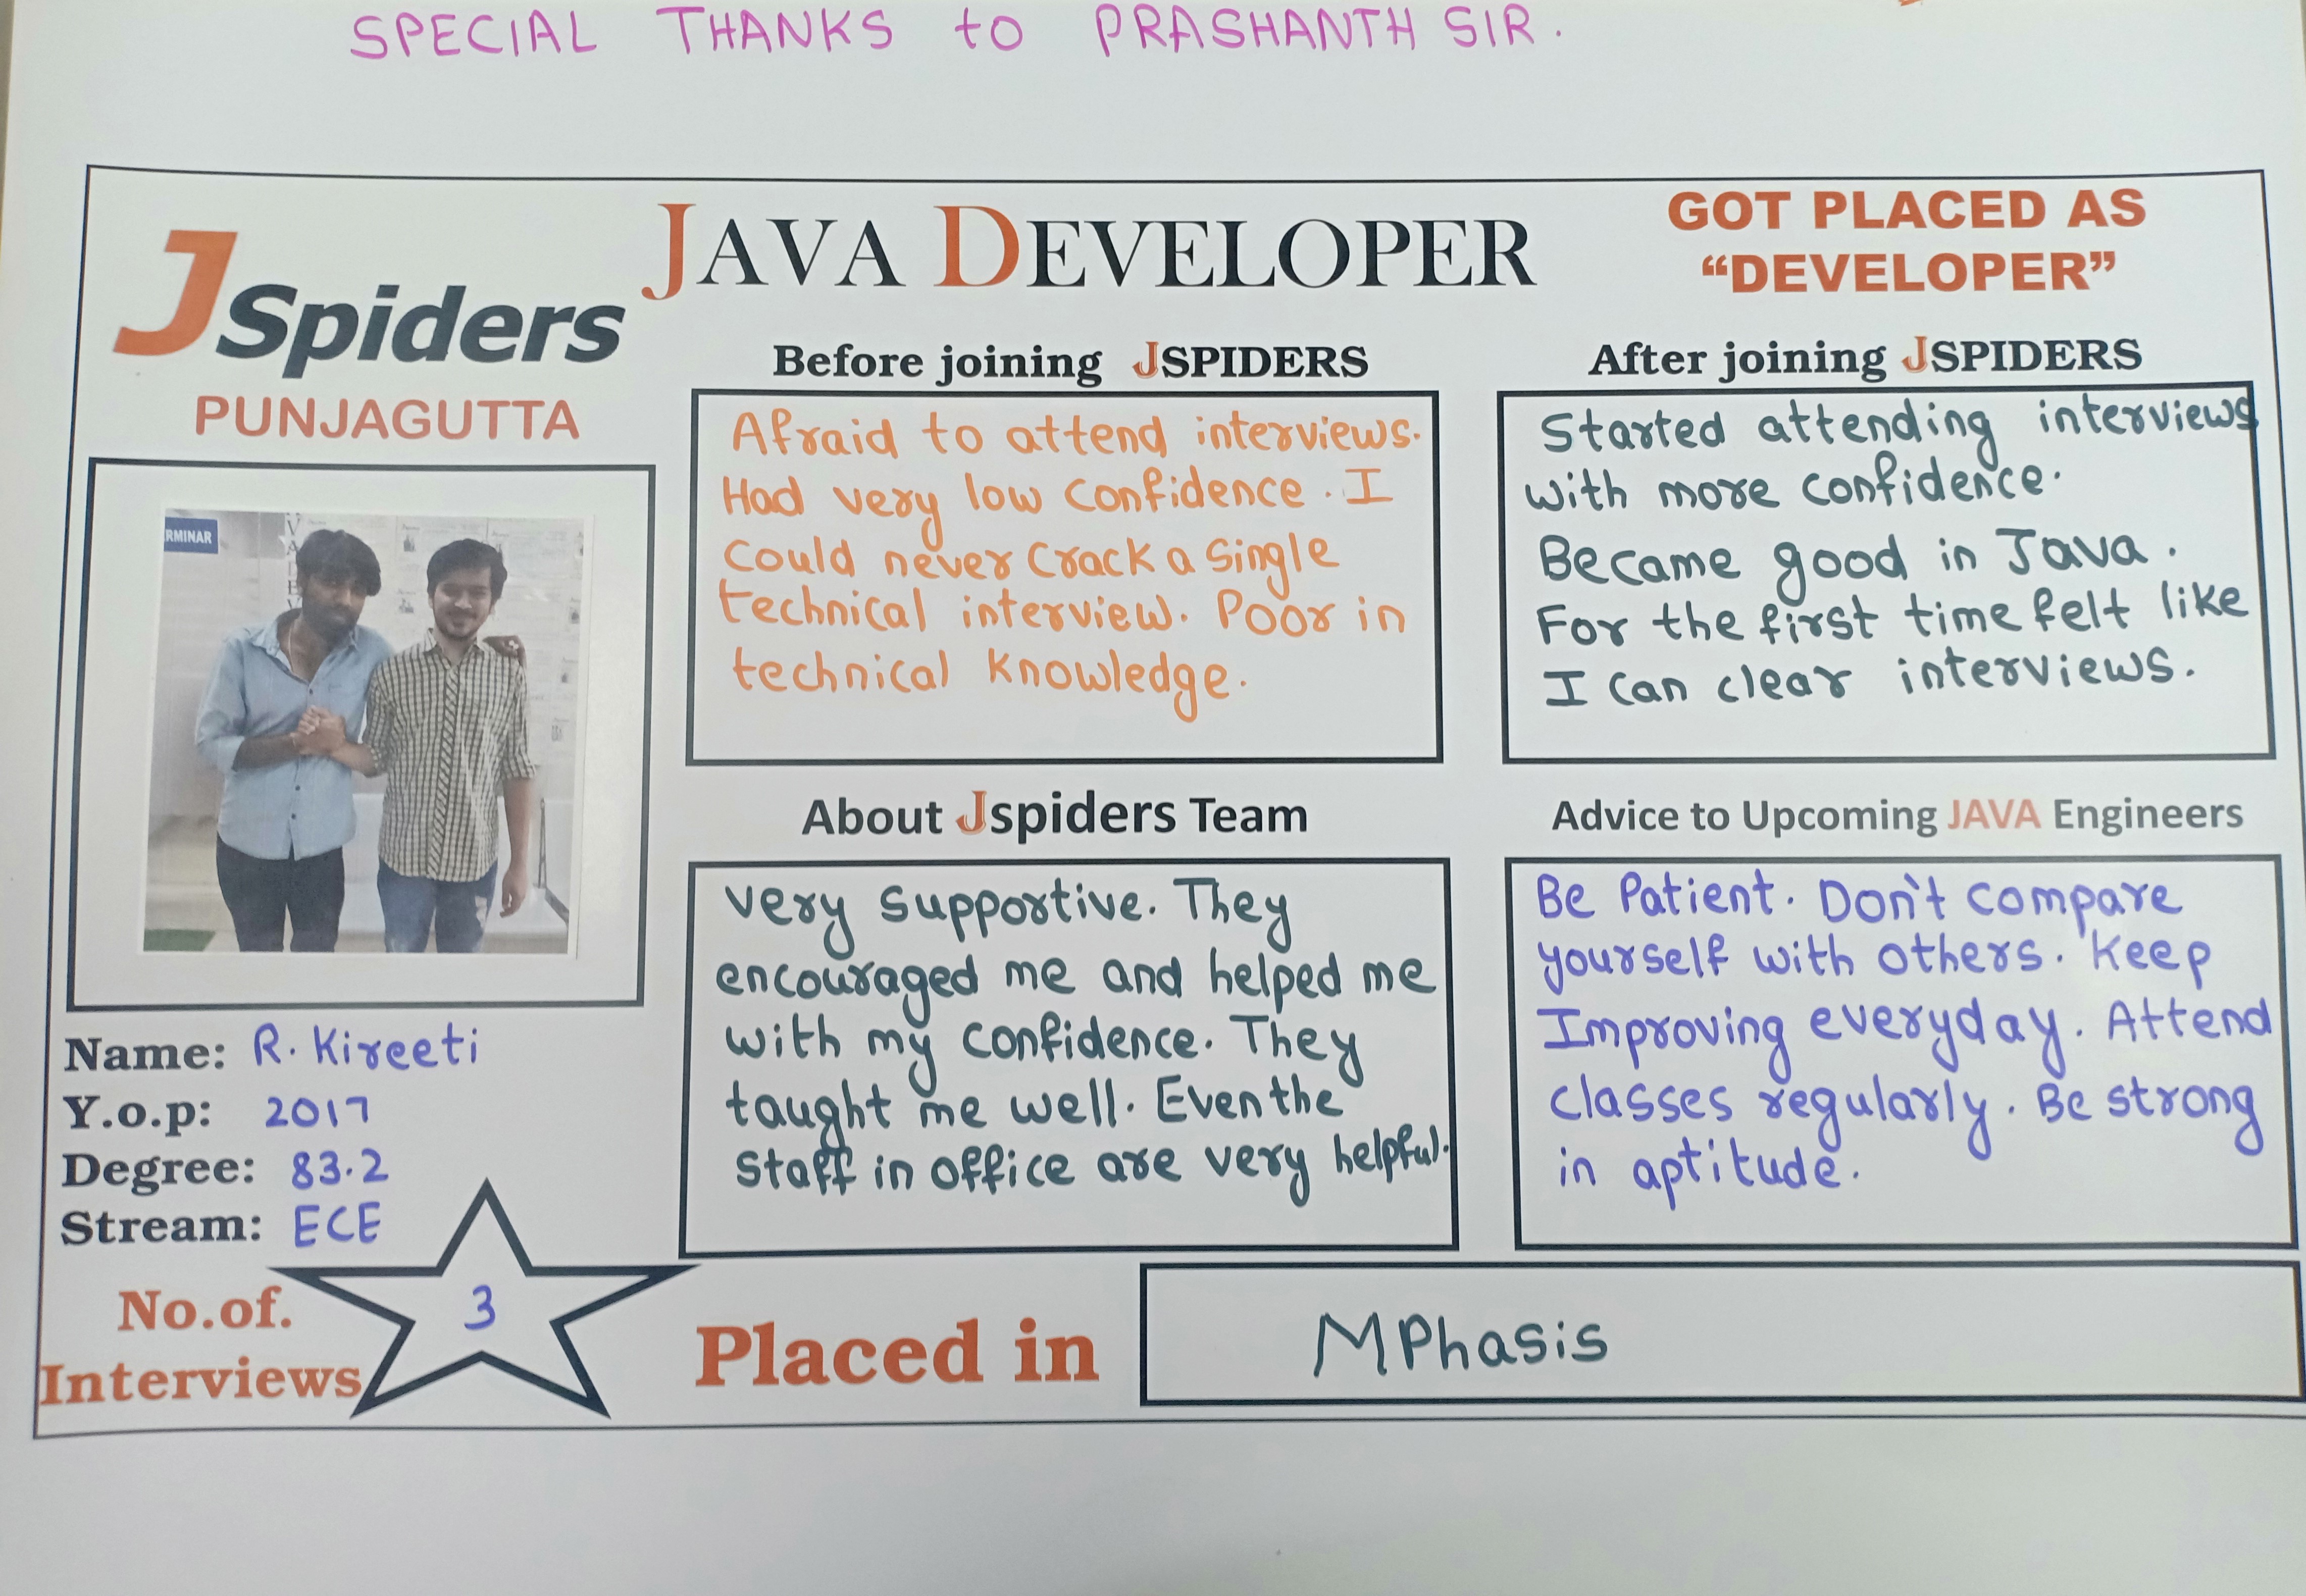 SPECIAL THANKS to PRASHANTH SIR.
JSpiders
PUNJAGUTTA
JAVA DEVELOPER
GOT PLACED AS
“DEVELOPER”
Before joining JSPIDERS
Afraid to attend interviews.
Had very low confidence. I
could never crack a single
technical interview. Poor in
technical knowledge.
After joining JSPIDERS
Started attending interviews
with more confidence.
Became good in Java.
For the first time felt like
I can clear interviews.
RMINAR
About Jspiders Team
very supportive. They
encouraged me and helped me
with my confidence. They
taught me well. Even the
staff in office are very helpful.
Advice to Upcoming JAVA Engineers
Be Patient. Don't compare
yourself with others. Keep
Improving everyday. Attend
classes regularly. Be strong
in aptitude.
Name: R. Kireeti
Y.o.p: 2017
Degree: 83.2
Stream: ECE
No.of.
Interviews
3
Placed in
MPhasis